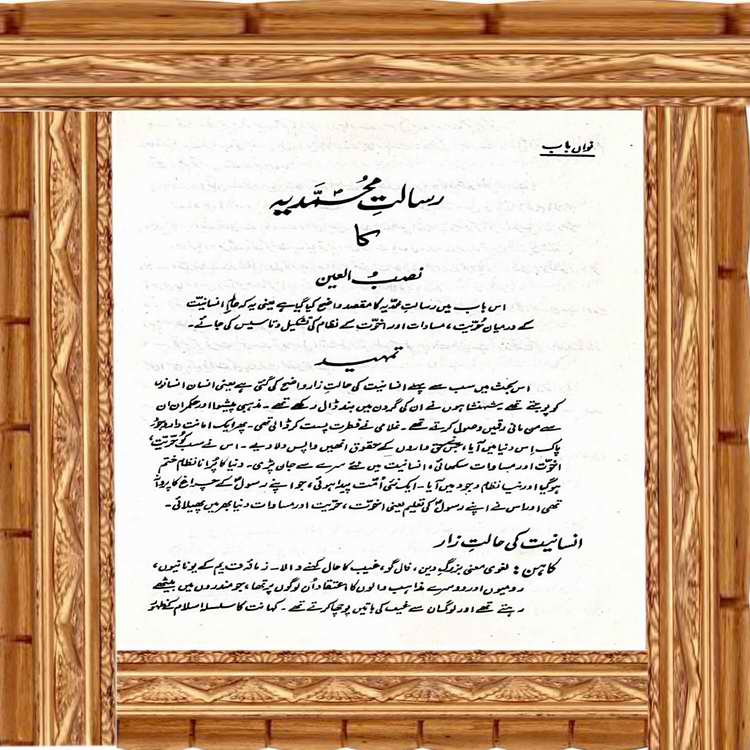 نواں باب
رسالتِ محمدیہ
کا
نصبُ العین
اس باب میں رسالتِ محمدیہ کا مقصد واضح کیا گیا ہے یعنی یہ کہ عالمِ انسانیت
کے درمیان حُرّیت، مساوات اور اخوّت کے نظام کی تشکیل و تاسیس کی جائے۔
تمہید
اس بحث میں سب سے پہلے انسانیت کی حالتِ زار واضح کی گئی ہے یعنی انسان انسانوں
کو پوجتے تھے۔ شہنشاہوں نے ان کی گردن میں بند ڈال رکھے تھے۔ مذہبی پیشوا اور حکمران ان
سے من مانی رقمیں وصول کرتے تھے۔ غلامی نے فطرت پست کر ڈالی تھی۔ پھر ایک امانت دار وجود
پاک اِس دنیا میں آیا، جس نے حق داروں کے حقوق انھیں واپس دلا دیے۔ اس نے سب کو حُرّیت،
اخوّت اور مساوات سکھائی، انسانیت میں نئے سرے سے جان پڑی۔ دنیا کا پُرانا نظام ختم
ہو گیا اور نیا نظام وجود میں آیا۔ ایک نئی اُمّت پیدا ہوئی، جو اپنے رسولؐ کے چراغ کا پروانہ
تھی اور اس نے اپنے رسولؐ کی تعلیم یعنی اخوّت، حُرّیت اور مساوات دنیا بھر میں پھیلائی۔
انسانیت کی حالتِ زار
کاہن: لغوی معنی بزرگِ دین، فال گو، غیب کا حال کہنے والا۔ زمانۂ قدیم کے یونانیوں،
رومیوں اور دوسرے مذاہب والوں کا اعتقاد اُن لوگوں پر تھا، جو مندروں میں بیٹھے
رہتے تھے اور لوگ ان سے غیب کی باتیں پوچھا کرتے تھے۔ کہانت کا سلسلہ اسلام کے